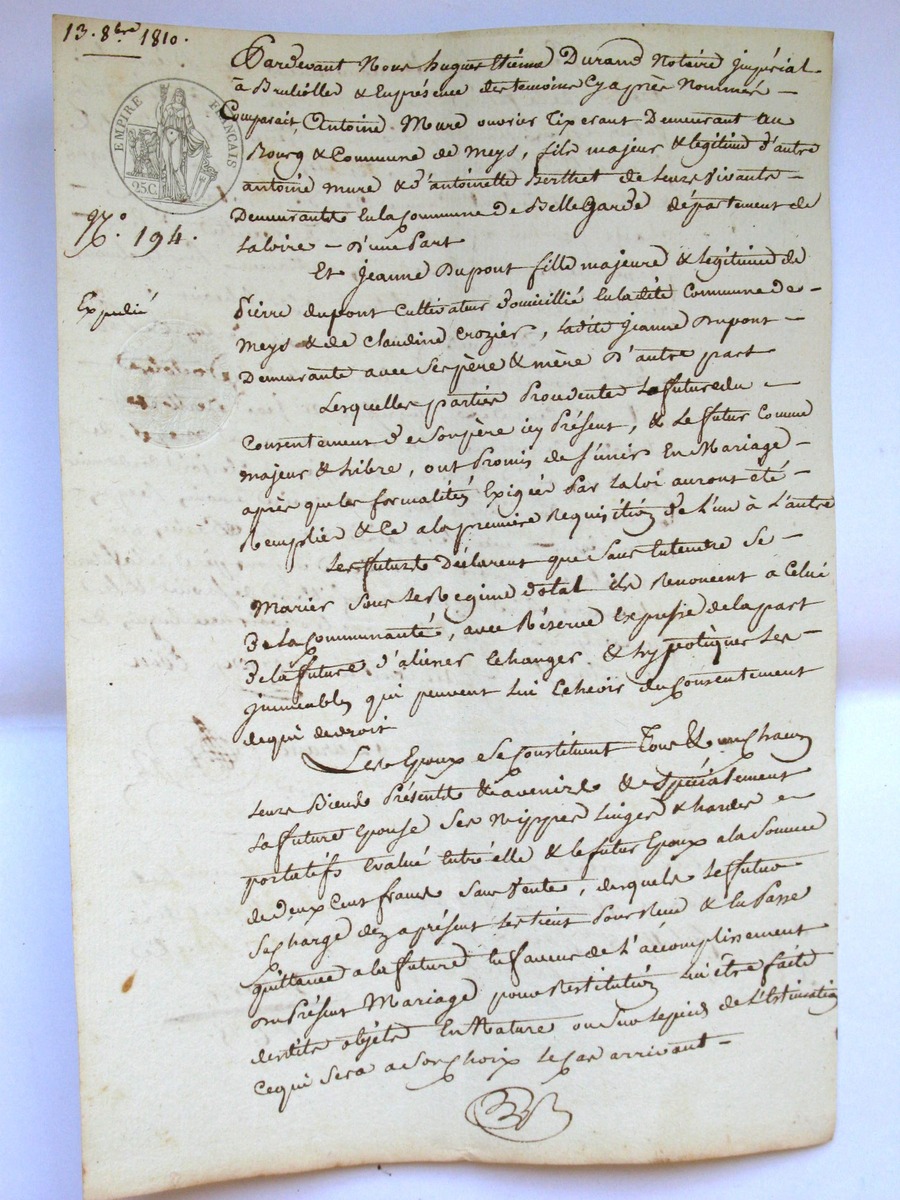 13. 8bre 1810.
EMPIRE FRANÇAIS
25C.
N.o 194.
Expedié
Pardevant Nous hugues Etiénne Durand Notaire jmpérial
à Bruliolles & Enprésence des temoins Cyaprès Nommés –
Comparait, Antoine Mure ouvrier Tixerant Demeurant au
Bourg & Commune de Meys, fils majeur & légitime d'autre
antoine mure & d'antoinette Berthet de leurs vivants –
Demeurants En la Commune de Bellegarde département de
la loire – D'une Part
Et Jeanne Dupont fille majeure & légitime de
Pierre dupont Cultivateur Domicillié En ladite Commune de –
Meys & de Claudine Crozier, ladite Jeanne Dupont –
Demeurante avec Ses père & mère D'autre part
Lesquelles parties Procedentes La future du –
Consentement de Son père icy Présent, & Le futur Comme
majeur & Libre, ont Promis de S'unir En Mariage –
après que les formalités Exigées Par la loi auront été –
Remplies & Ce a la première Requisition de L'un à L'autre
Les futurs Déclarent que Sans Entendre Se –
Marier Sous Le Regime Dotal ils Renoncent a Celui
De la Communauté, avec Réserve Expresse de la part
De la future d'aliéner Echanger & hypotéquer Les –
jmmeubles qui peuvent lui Echeoir du Consentement
de qui de droit
Les Epoux Se Constituent Tous & un Chacun
leurs Biens Présents & avenirs & Spécialement
la future Epouse Ses Nippes Linges & hardes –
portatifs Evalué Entre elle & le futur Epoux a la Somme
de deux Cent francs Sans Vente, desquels Le futur
Se Charge dez aprésent Les tient Pour Reçu & En Passe
Quittance a la future En faveur de L'accomplissement
du Présent Mariage pour Restitution lui être faite
desdits objets En Nature ou Sur Le pied de L'Estimation
Ce qui Sera a Son Choix Le Cas arrivant –